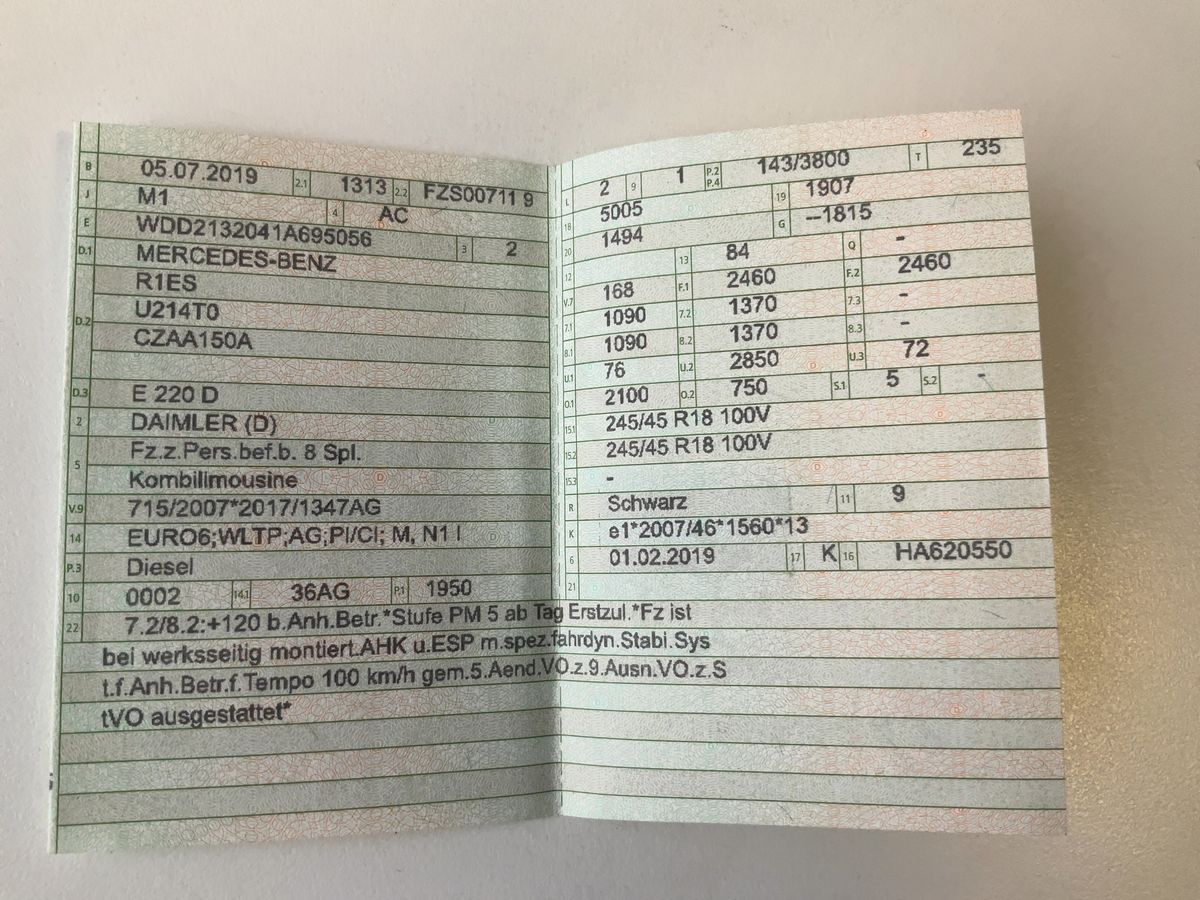 B 05.07.2019 2.1 1313 2.2 FZS00711 9
J M1 4 AC
E WDD2132041A695056 3 2
D.1 MERCEDES-BENZ
R1ES
D.2 U214T0
CZAA150A
D.3 E 220 D
2 DAIMLER (D)
5 Fz.z.Pers.bef.b. 8 Spl.
Kombilimousine
V.9 715/2007*2017/1347AG
14 EURO6;WLTP;AG;PI/CI; M, N1 I
P.3 Diesel
10 0002 14.1 36AG P.1 1950
L 2 9 1 P.2 P.4 143/3800 T 235
18 5005 19 1907
20 1494 G --1815
12 13 84 Q -
V.7 168 F.1 2460 F.2 2460
7.1 1090 7.2 1370 7.3 -
8.1 1090 8.2 1370 8.3 -
U.1 76 U.2 2850 U.3 72
O.1 2100 O.2 750 S.1 5 S.2 -
15.1 245/45 R18 100V
15.2 245/45 R18 100V
15.3 -
R Schwarz 11 9
K e1*2007/46*1560*13
6 01.02.2019 17 K 16 HA620550
21
22 7.2/8.2:+120 b.Anh.Betr.*Stufe PM 5 ab Tag Erstzul.*Fz ist
bei werksseitig montiert.AHK u.ESP m.spez.fahrdyn.Stabi.Sys
t.f.Anh.Betr.f.Tempo 100 km/h gem.5.Aend.VO.z.9.Ausn.VO.z.S
tVO ausgestattet*